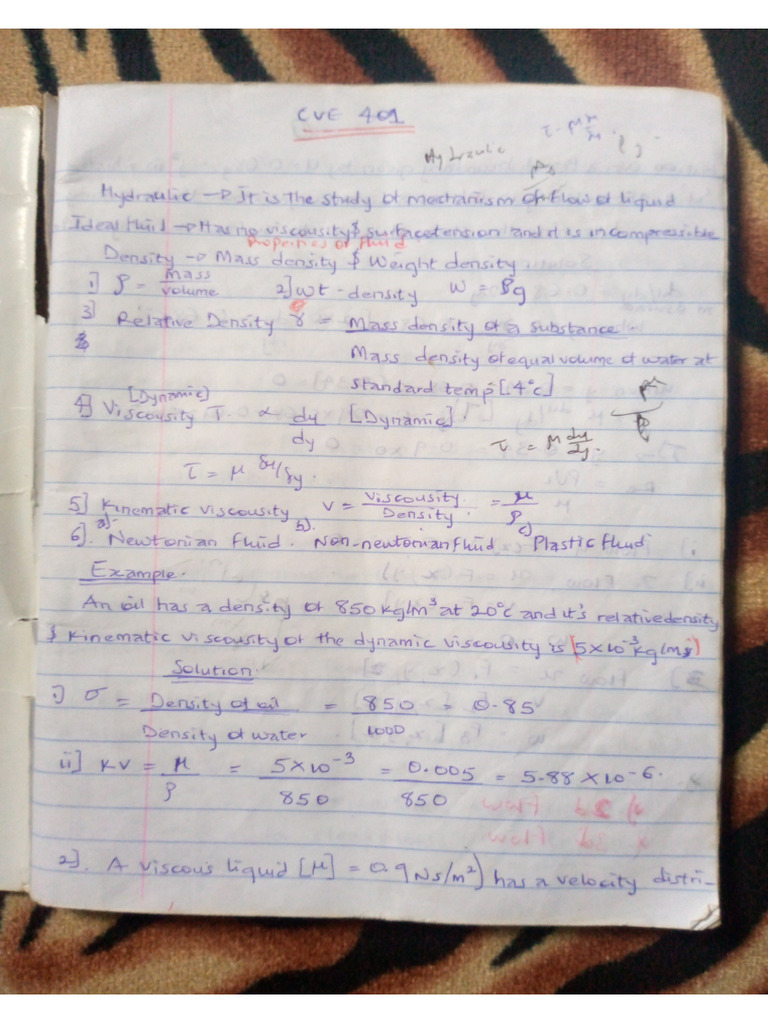 CVE 401
Hydraulic
Hydraulic → It is the study of mechanism of flow of liquid
Ideal fluid → Has no viscousity & surface tension and it is incompressible
Properties of fluid
Density → Mass density & Weight density
1] ρ = mass / volume 2] wt-density W = ρg
3] Relative Density γ = Mass density of a substance
Mass density of equal volume of water at
standard temp [4°c]
4] Viscousity [Dynamic] τ ∝ du/dy [Dynamic].
τ = μ du/dy.
τ = μ δu/δy.
5] Kinematic viscousity v = Viscousity / Density = μ/ρ
6]. a) Newtonian fluid. b). Non-newtonian fluid c) Plastic fluid
Example.
An oil has a density of 850kg/m³ at 20°c and it's relative density
& Kinematic viscousity of the dynamic viscousity is [5×10⁻³kg/ms]
Solution.
i) σ = Density of oil / Density of water = 850/1000 = 0.85
ii] KV = μ/ρ = 5×10⁻³/850 = 0.005/850 = 5.88×10⁻⁶.
2]. A viscous liquid [μ] = 0.9Ns/m²) has a velocity distri-